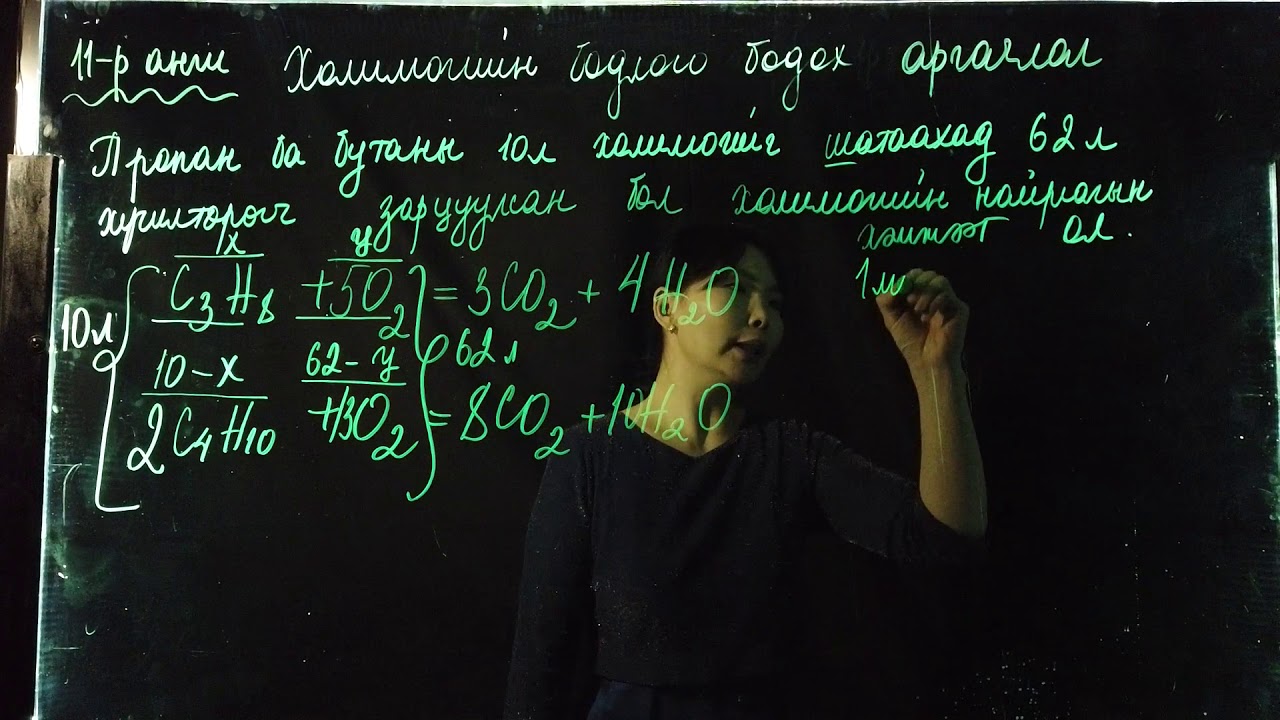 11-р анги Холимогийн бодлого бодох аргачлал
Пропан ба бутаны 10л холимогийг шатаахад 62л
хүчилтөрөгч зарцуулсан бол холимогийн найрлагын
хэмжээг ол.
x y
C₃H₈ +5O₂ = 3CO₂ + 4H₂O 1мо
10л 62л
10-x 62-y
2C₄H₁₀ +13O₂ = 8CO₂ + 10H₂O